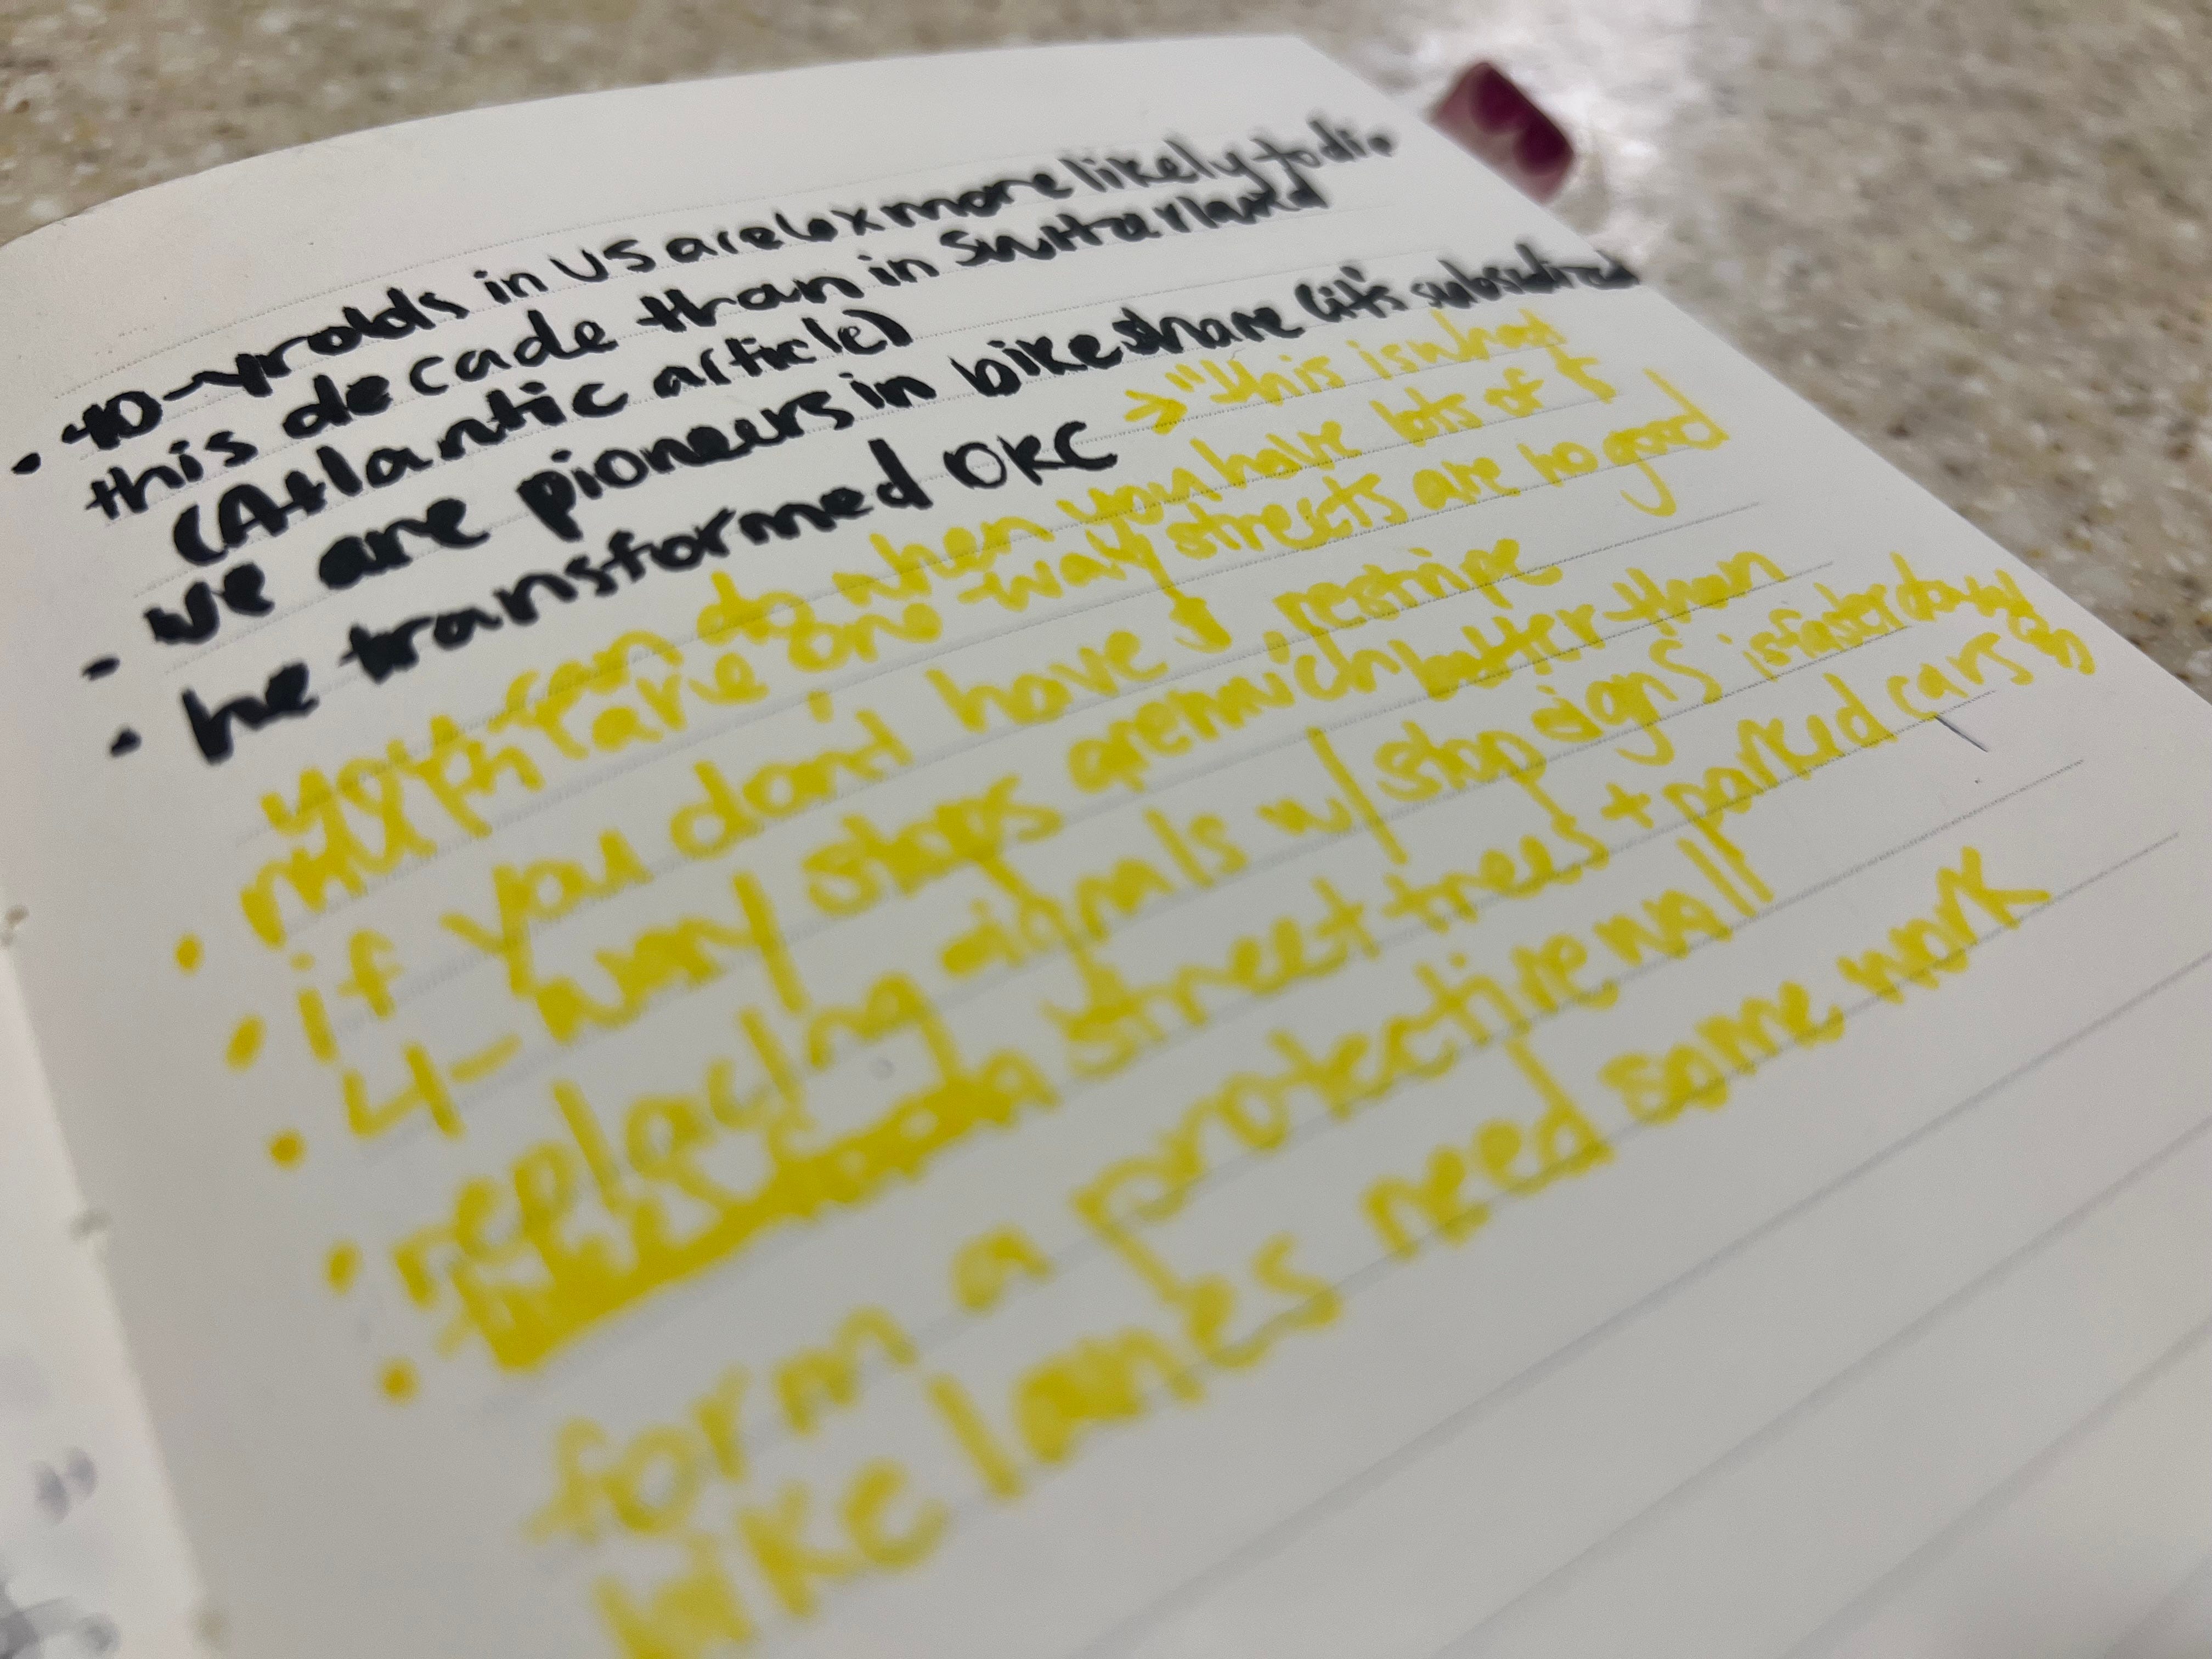 • 40-yr olds in US are 6x more likely to die
this decade than in Switzerland
(Atlantic article)
• we are pioneers in bikeshare (it's subsidized
• he transformed OKC → "this is what
you can do when you have lots of $
• multi lane one-way streets are no good
• if you don't have $, restripe
• 4-way stops are much better than
• replacing signals w/ stop signs is faster
street trees + parked cars
form a protective wall
bike lanes need some work